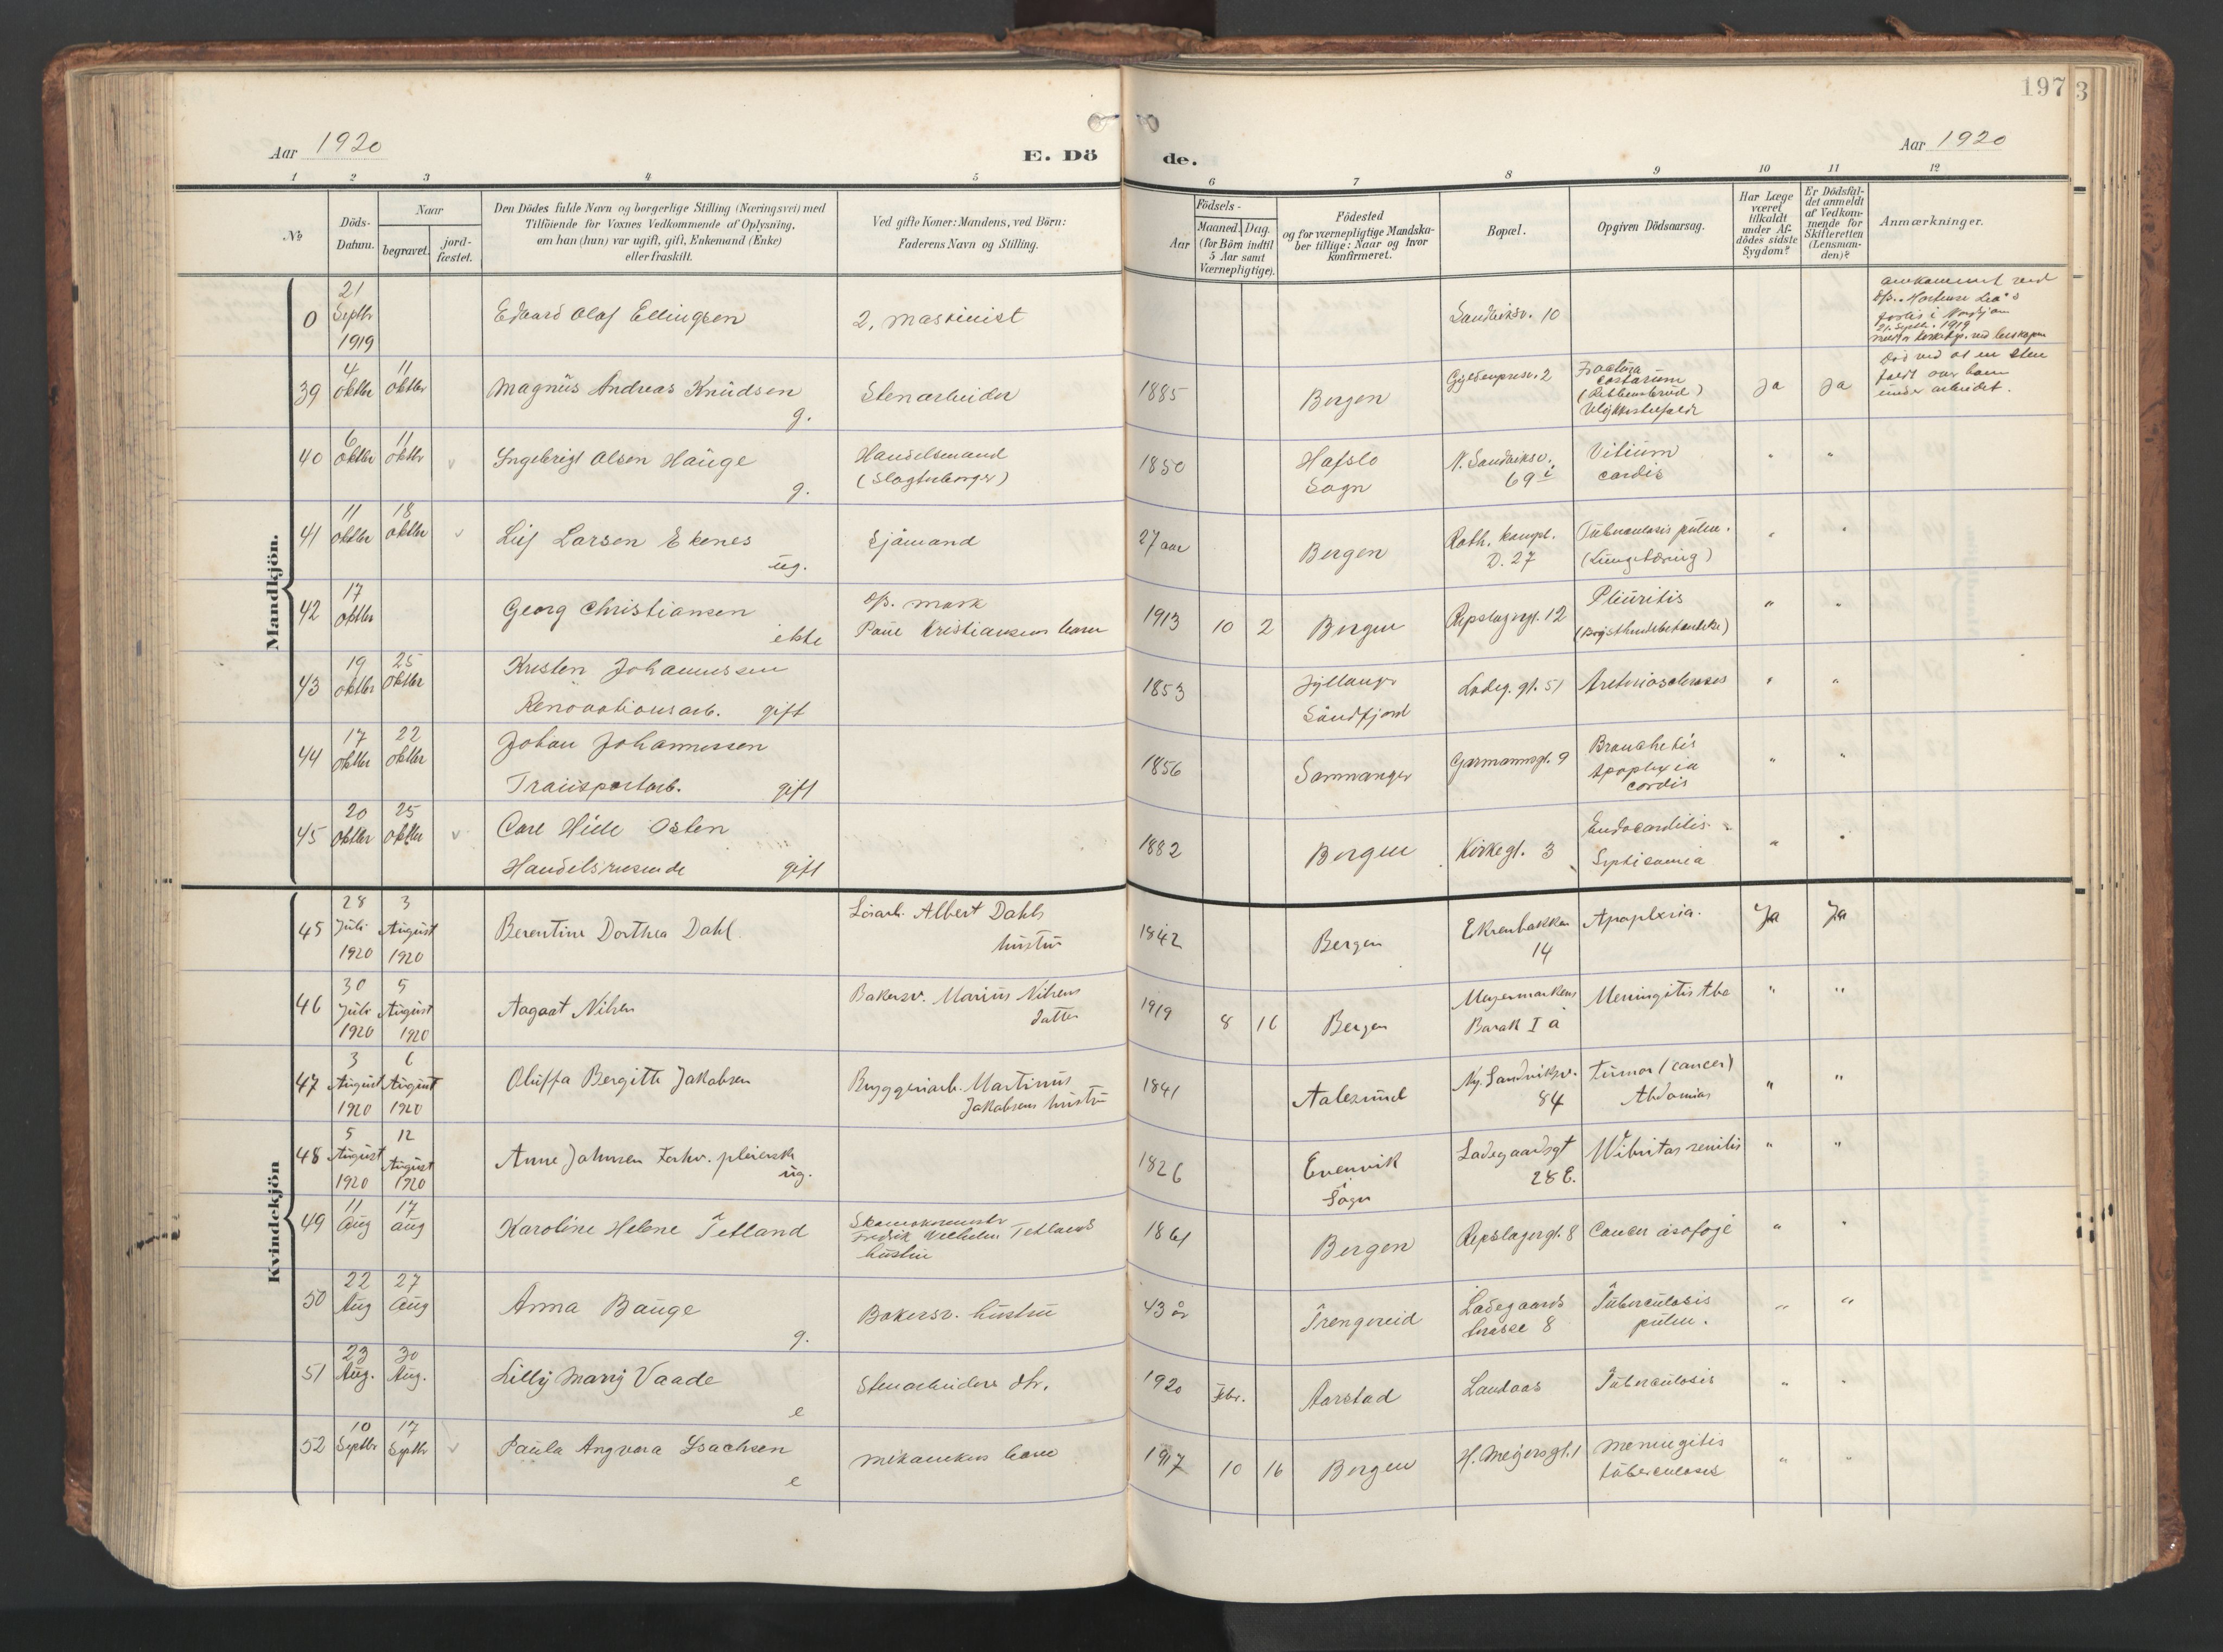 197
3
Aar 1920
E. Dö
de.
Aar 1920
1 2 3 4 5
6 7 8 9 10 11 12
№
Döds-
Datum.
Naar
begravet.
jord-
fæstet.
Den Dödes fulde Navn og borgerlige Stilling (Næringsvei) med
Tilföiende for Voxnes Vedkommende af Oplysning,
om han (hun) var ugift, gift, Enkemand (Enke)
eller fraskilt.
Ved gifte Koner: Mandens, ved Börn:
Faderens Navn og Stilling.
Födsels-
Aar
Maaned. Dag.
(for Börn indtil
5 Aar samt
Værnepligtige).
Födested
og for værnepligtige Mandska-
ber tillige: Naar og hvor
konfirmeret.
Bopæl.
Opgiven Dödsaarsag.
Har Læge
været
tilkaldt
under Af-
dödes sidste
Sygdom?
Er Dödsfal-
det anmeldt
af Vedkom-
mende for
Skifteretten
(Lensman-
den)?
Anmærkninger.
Mandkjön.
0
21
Septbr
1919
Edvard Olaf Ellingsen
2, maskinist
Sandviksv. 10
omkommet ved
forlis i
21. Septbr. 1919
39
4 11
oktbr oktbr
Magnus Andreas Knudsen
g.
Stenarbeider
1885
Bergen
Gyldenpresv. 2
Fractura
costarum
(Ribbensbrud)
Ulykkestilfælde
Ja Ja
Död ved at en sten
faldt over ham
under arbeidet.
40
6 11
oktbr oktbr
Ingebrigt Olsen Hauge
g.
Handelsmand
(Slagterborger)
1850
Hafslo
Sogn
N. Sandviksv.
69 i
Vitium
cordis
" "
41
11 18
oktbr oktbr
Leif Larsen Ekenes
ug.
Sjömand
27 aar
Bergen
Roth. kompl.
D. 27
Tuberculosis pulm.
(Lungetæring)
" "
42
17
oktbr
Georg Christiansen
ekte
Paul Kristiansens barn
1913 10 2
Bergen
Repslagergt. 12
Pleuritis
(Brysthindebetændelse)
" "
43
19 25
oktbr oktbr
Kristen Johannessen
Renovationsarb. gift
1853
Jyllanger
Söndfjord
Ladeg. gt. 51
Arteriosclerosis
" "
44
17 22
oktbr oktbr
Johan Johannessen
Transportarb. gift
1856
Samnanger
Garmannsgt. 9
Bronchitis
Apoplexia
cordis
" "
45
20 25
oktbr oktbr
Carl Hille Osten
Handelsreisende gift
1882
Bergen
Kirkegt. 3
Endocarditis
Septicæmia
" "
Kvindekjön
45
28 3
Juli August
1920 1920
Berentine Dorthea Dahl.
Lösarb. Albert Dahls
hustru
1842
Bergen
Ekrenbakken
14
Apoplexia.
Ja Ja
46
30 5
Juli August
1920 1920
Aagaat Nilsen
Bakersv. Marius Nilsens
datter
1919 8 16
Bergen
Meyermarkens
Barak I a
Meningitis tbc
" "
47
3 6
August August
1920 1920
Oluffa Bergitte Jakobsen
Bryggeriarb. Martinus
Jakobsens hustru
1841
Aalesund
Ny. Sandviksv.
84
Tumor (cancer)
Abdominis
" "
48
5 12
August August
1920 1920
Anne Johnsen Forhv. pleierske
ug.
1826
Evenvik
Sogn
Ladegaardsgt
28 E.
" "
49
11 17
Aug aug
Karoline Helene Tetland
Fredrik Wilhelm Tetlands
hustru
1861
Bergen
Repslagergt. 8
Cancer
" "
50
22 27
Aug Aug
Anna Bauge
g.
Bakersv. hustru
43 år
Trengereid
Ladegaards
terasse 8
Tuberculosis
pulm.
" "
51
23 30
Aug. Aug.
Lilly Mary Vaade
e
Stenarbeiders dtr.
1920 Febr.
Aarstad
Landaas
Tuberculosis
" "
52
10 17
Septbr Septbr
Paula Angvora Isachsen
e
mekanikers barn
1917 10 16
Bergen
H. Meyersgt. 1
Meningitis
tuberculosis
" "